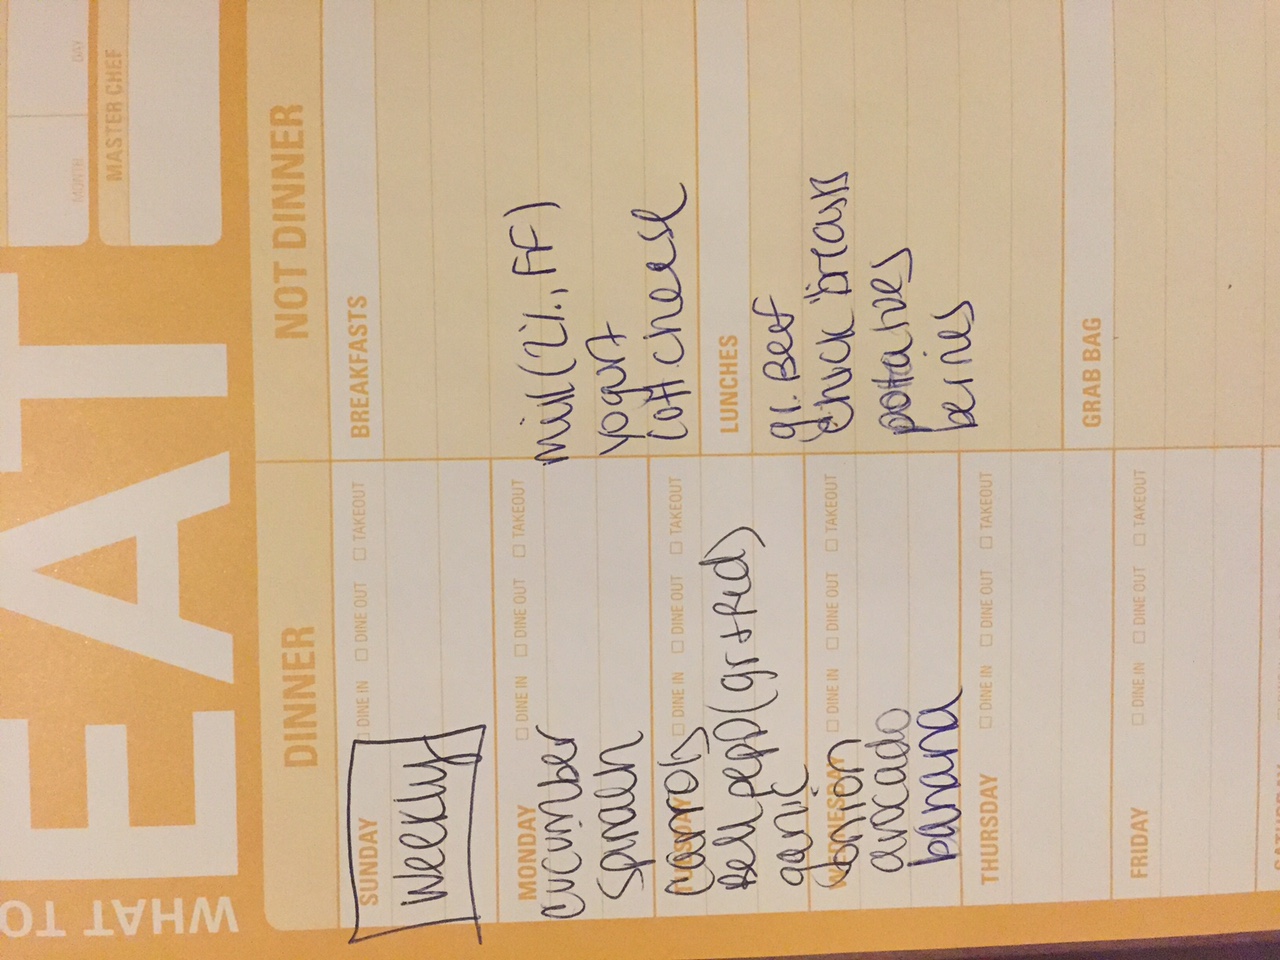 WHAT TO
EAT
MONTH DAY
MASTER CHEF
DINNER
NOT DINNER
SUNDAY □ DINE IN □ DINE OUT □ TAKEOUT
Weekly
MONDAY □ DINE IN □ DINE OUT □ TAKEOUT
cucumber
spinach
TUESDAY □ DINE IN □ DINE OUT □ TAKEOUT
carrots
Bell pepp (gr + red)
garlic
WEDNESDAY □ DINE IN □ DINE OUT □ TAKEOUT
onion
avocado
banana
THURSDAY □ DINE IN □ DINE OUT □ TAKEOUT
FRIDAY □ DINE IN □ DINE OUT □ TAKEOUT
BREAKFASTS
milk (2%, FF)
yogurt
cott cheese
LUNCHES
gr. Beef
chick breasts
potatoes
berries
GRAB BAG